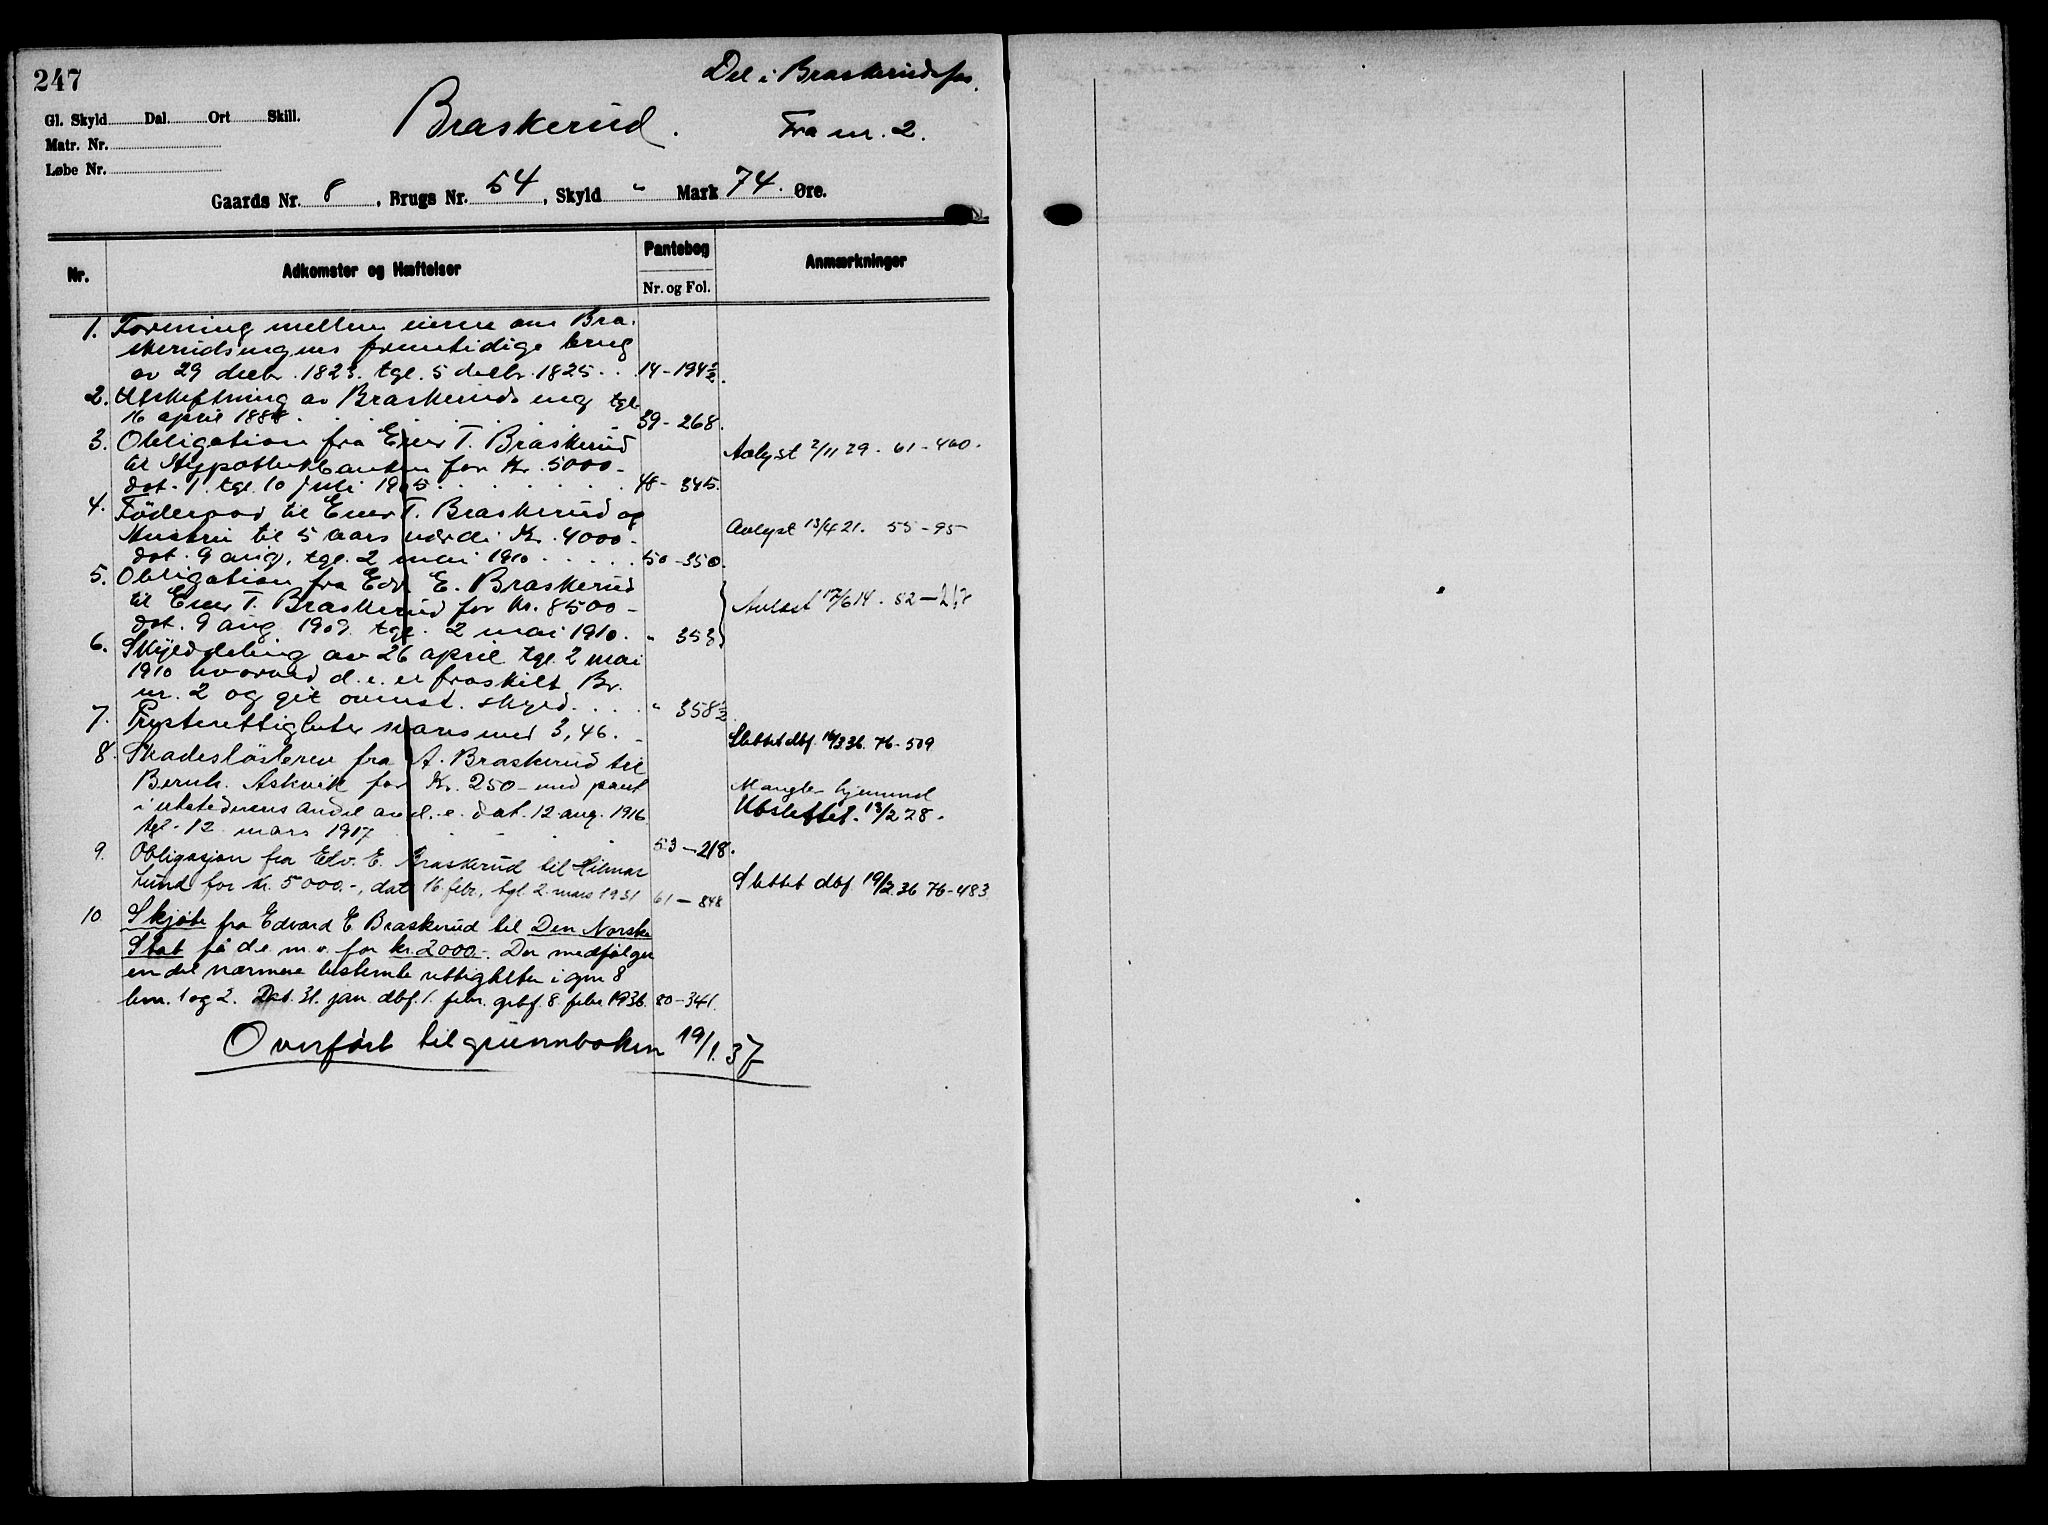 247
Del i Braskerudsfos.
Gl. Skyld Dal. Ort Skill.
Braskerud. Fra nr. 2.
Matr. Nr.
Løbe Nr.
Gaards Nr. 8, Brugs Nr. 54, Skyld " Mark 74. Øre.
Nr. Adkomster og Hæftelser Pantebog Nr. og Fol. Anmærkninger
1. Forening mellem eierne om Bra-
skerudsengens fremtidige brug
av 29 decbr. 1823. tgl. 5 decbr. 1825. . 14-194
2. Utskiftning av Braskeruds eng tgl.
16 april 1888 . . . 39-268.
3. Obligation fra Ener T. Braskerud
til Hypothekbanken for Kr. 5000- Avlyst 2/11 29. 61-460.
dat. 1. tgl. 10 juli 1905. . . . 48-345.
4. Føderaad til Ener T. Braskerud og
Hustru til 5 aars værdi Kr. 4000- Avlyst 13/4 21. 55-95
dat. 9 aug. tgl. 2 mai 1910 . . . 50-350.
5. Obligation fra Edv. E. Braskerud
til Ener T. Braskerud for Kr. 8500- Avlæst 17/6 14. 52-
dat. 9 aug. 1909. tgl. 2 mai 1910. " 353
6. Skylddeling av 26 april tgl. 2 mai
1910 hvorved d. e. er fraskilt Br.
nr. 2 og git ovenst. skyld. . . . " 358 1/2
7. rettigheter svares med 3,46. -
8. Skadesløsbrev fra A. Braskerud til Slettet dbf. 16/3 36. 76-509
Bernh. Askvik for Kr. 250- med pant Mangler hjemmel
i utstederens andel av d. e. dat. 12 aug. 1916 Utslettet. 13/2 28.
tgl. 12 mars 1917 . . . 53-218.
9. Obligasjon fra Edv. E. Braskerud til Hilmar
Lund for kr. 5000.-, dat. 16 febr., tgl. 2. mars 1931 61-848 Slettet dbf. 19/2 36 76-483
10 Skjøte fra Edvard E Braskerud til Den Norske
Stat på d.e. m.v. for kr 2000.-. Der medfølger
en del nærmere bestemte rettigheter i gnr 8
bnr. 1 og 2. Dat. 31. jan. dbf. 1. febr. gbf. 8. febr 1936. 80-341.
Overført til grunnboken 19/1. 37